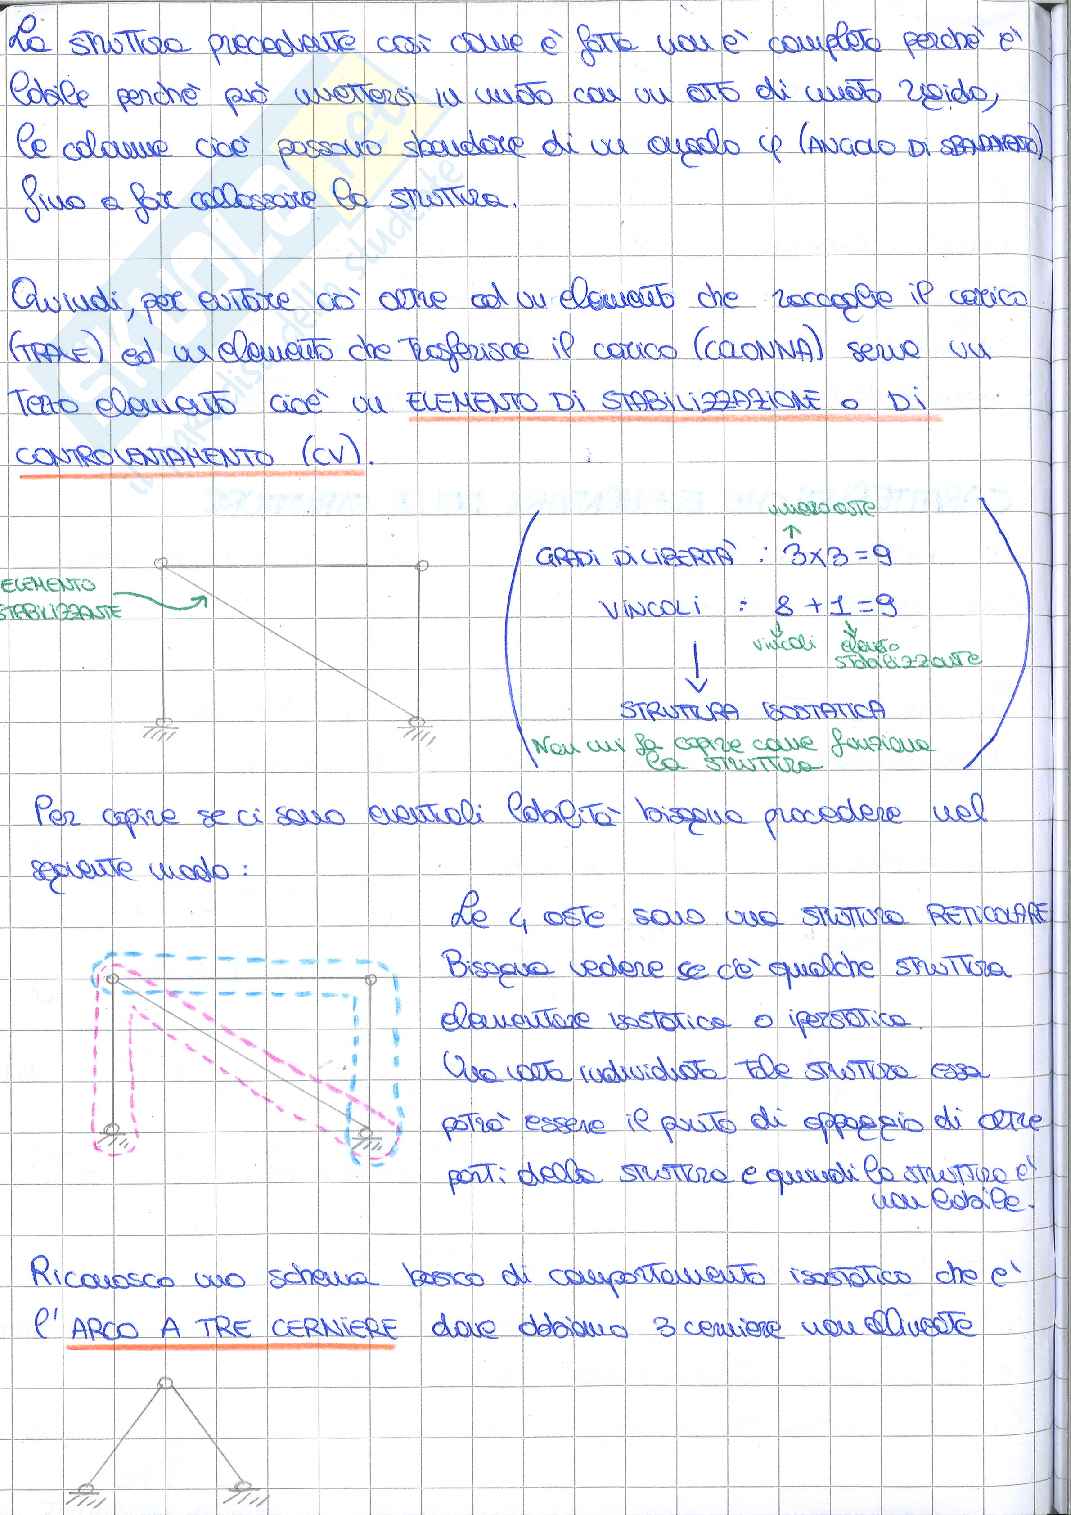 La struttura precedente così come è fatta non è completa perchè è
labile perchè può mettersi in moto con un atto di moto rigido,
le colonne cioè possono sbandare di un angolo φ (ANGOLO DI SBANDAMENTO)
fino a far collassare la struttura.
Quindi, per evitare ciò oltre ad un elemento che raccoglie il carico
(TRAVE) ed un elemento che trasferisce il carico (COLONNA) serve un
terzo elemento cioè un ELEMENTO DI STABILIZZAZIONE o DI
CONTROVENTAMENTO (CV).
numero aste
GRADI DI LIBERTÀ : 3x3=9
VINCOLI : 8+1=9
vincoli elemento
stabilizzante
STRUTTURA ISOSTATICA
Non mi fa capire come funziona
la struttura
ELEMENTO
STABILIZZANTE
Per capire se ci sono eventuali labilità bisogna procedere nel
seguente modo:
Le 4 aste sono una struttura RETICOLARE
Bisogna vedere se c'è qualche struttura
elementare isostatica o iperstatica.
Una volta individuata tale struttura essa
potrà essere il punto di appoggio di altre
parti della struttura e quindi la struttura è
non labile.
Riconosco uno schema basico di comportamento isostatico che è
l'ARCO A TRE CERNIERE dove abbiamo 3 cerniere non allineate